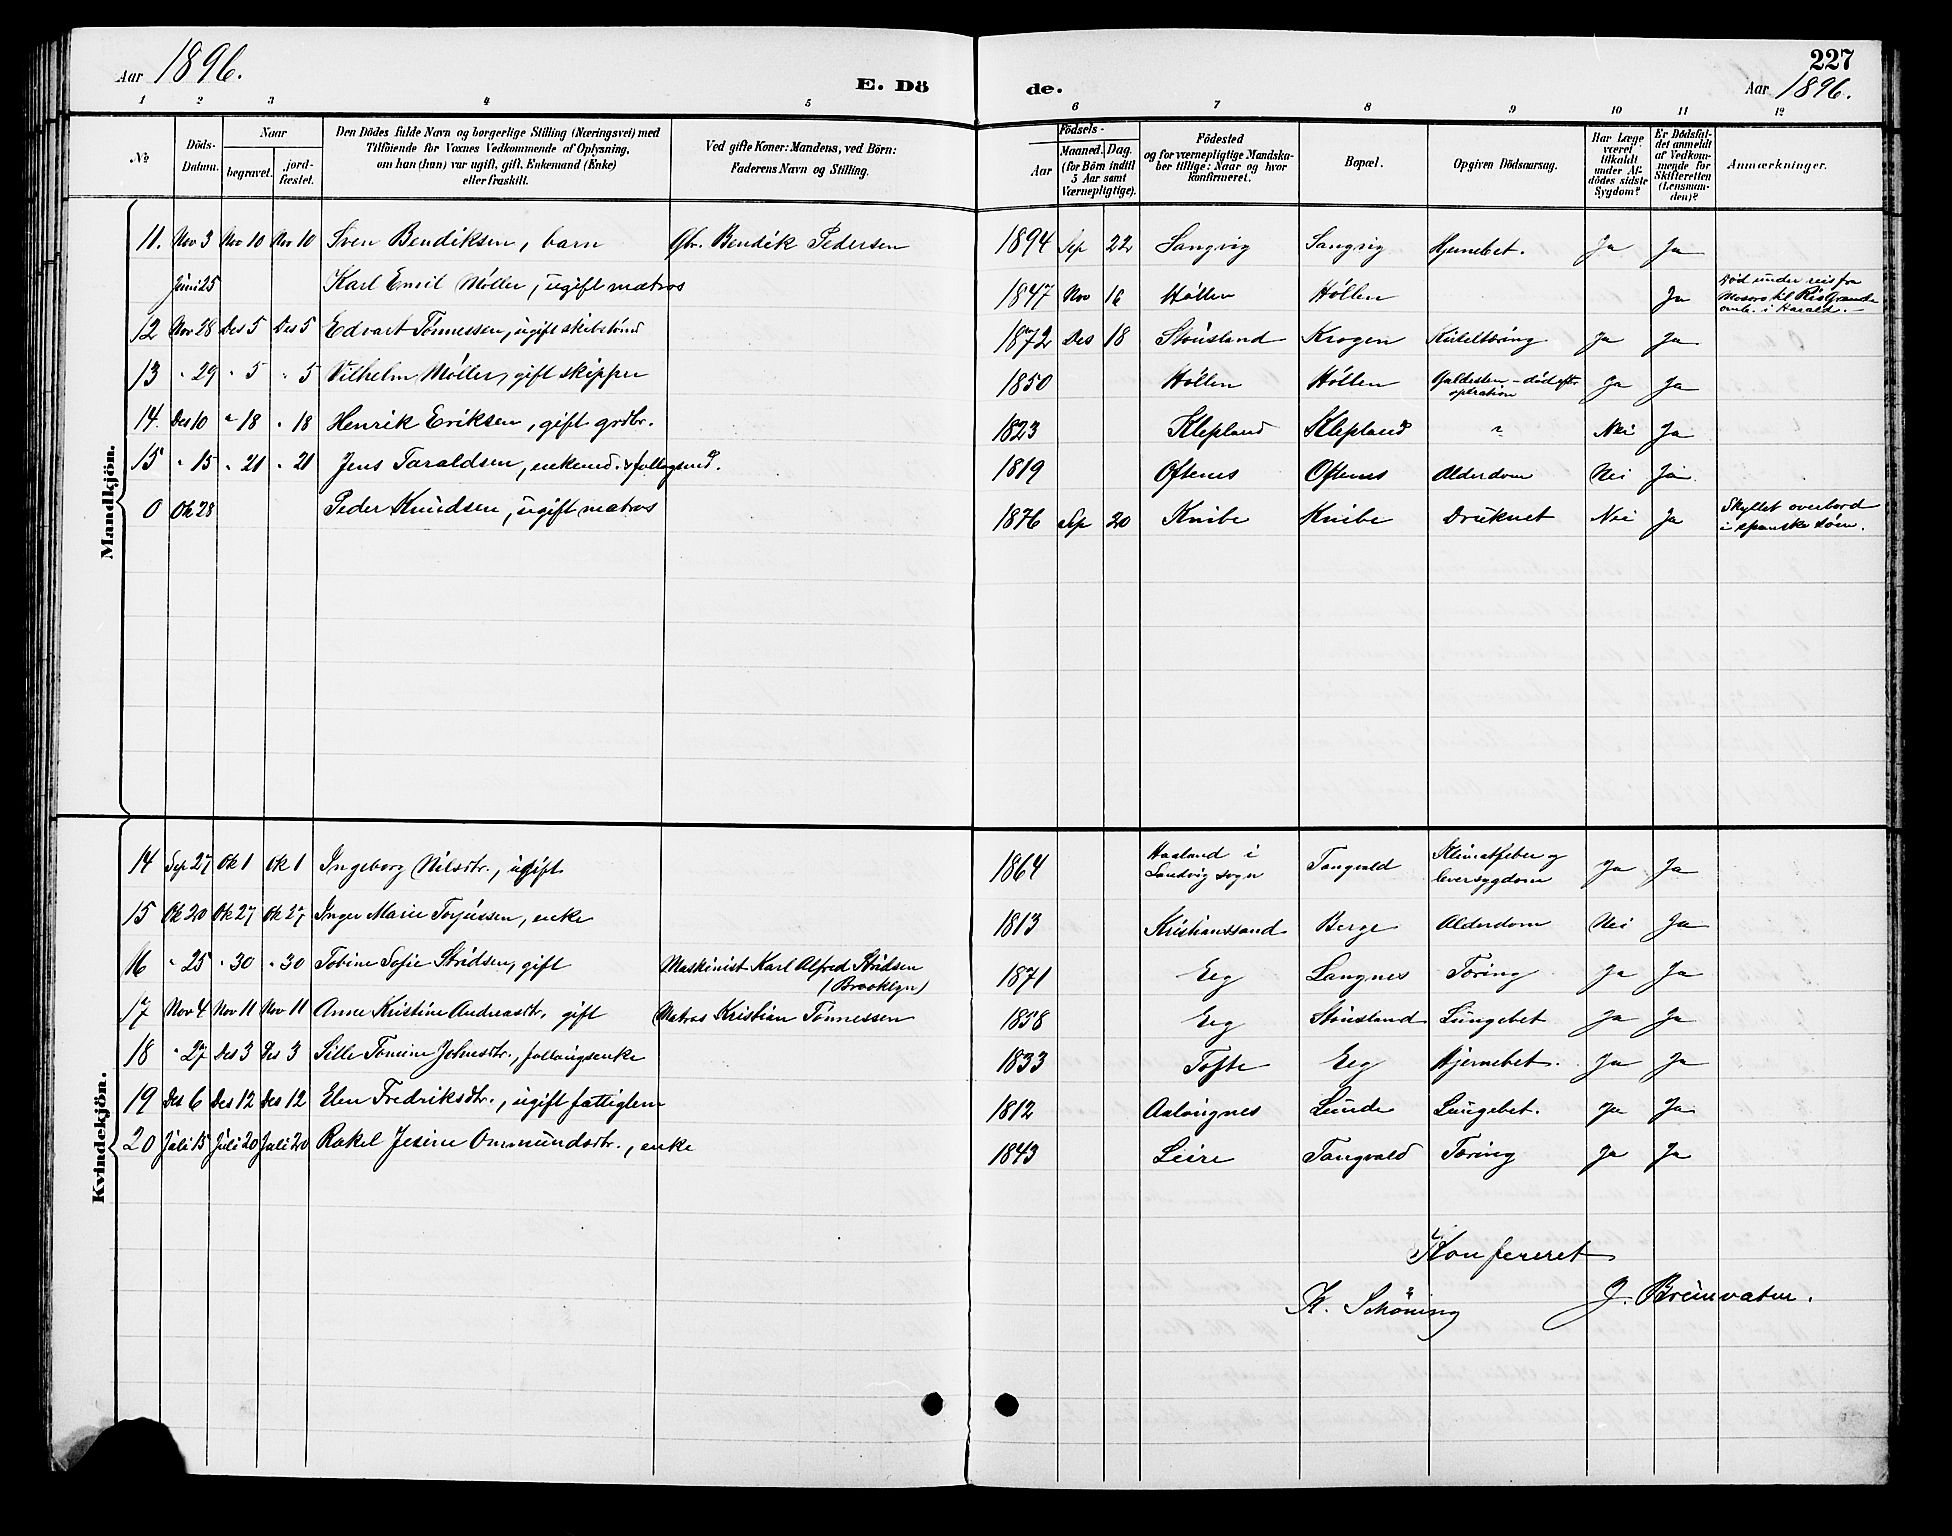 Aar 1896.
E. Dö
de.
227
Aar 1896.
1 2 3 4 5 6 7 8 9 10 11 12
No
Döds-
Datum.
Naar
begravet.
jord-
fæstet.
Den Dödes fulde Navn og borgerlige Stilling (Næringsvei) med
Tilföiende for Voxnes Vedkommende af Oplysning,
om han (hun) var ugift, gift, Enkemand (Enke)
eller fraskilt.
Ved gifte Koner: Mandens, ved Börn:
Faderens Navn og Stilling.
Födsels-
Aar
Maaned.
Dag.
(for Börn indtil
5 Aar samt
Værnepligtige).
Födested
og for værnepligtige Mandska-
ber tillige: Naar og hvor
konfirmeret.
Bopæl.
Opgiven Dödsaarsag.
Har Læge
været
tilkaldt
under Af-
dödes sidste
Sygdom?
Er Dödsfal-
det anmeldt
af Vedkom-
mende for
Skifteretten
(Lensman-
den)?
Anmærkninger.
Mandkjön.
11. Nov 3 Nov 10 Nov 10 Sven Bendiksen, barn Gbr. Bendik Pedersen 1894 Sep 22 Langvig Langvig Hjernebet. Ja Ja
Juni 25 Karl Emil Møller, ugift matros 1847 Nov 16 Höllen Höllen Ja Död under reis fra
til Rio Grande
i Harald.
12 Nov 28 Des 5 Des 5 Edvart Tönnessen, ugift 1872 Des 18 Stousland Krogen Ja Ja
13 " 29 " 5 " 5 Vilhelm Möller, gift skipper 1850 Höllen Höllen Galdesten - död efter
operation Ja Ja
14. Des 10 " 18 " 18 Henrik Eriksen, gift grdbr. 1823 Klepland Klepland " Nei Ja
15 " 15 " 21 " 21 Jens Taraldsen, enkemd. 1819 Oftenes Oftenes Alderdom Nei Ja
0 Ok 28 Peder Knudsen, ugift matros 1876 Sep 20 Knibe Knibe Druknet Nei Ja Skyllet overbord
i spanske söen.
Kvindekjön.
14 Sep 27 Ok 1 Ok 1 Ingeborg Nilsdtr., ugift 1864 Haaland i
Landvig sogn Tangvald Klimatfeber og
leversygdom Ja Ja
15 Ok 20 Ok 27 Ok 27 Inger Marie Torjussen, enke 1813 Kristianssand Berge Alderdom Nei Ja
16 " 25 " 30 " 30 Tobine Sofie Stridsen, gift Maskinist Karl Alfred Stridsen
(Brooklyn) 1871 Eeg Langnes Tæring Ja Ja
17 Nov 4 Nov 11 Nov 11 Anne Kristine Andreasdtr. gift Matros Kristian Tönnessen 1858 Eeg Stousland Lungebet Ja Ja
18 " 27 Des 3 Des 3 Sille Tomine Johnsdtr., follaugsenke 1833 Tofte Eeg Hjernebet. Ja Ja
19 Des 6 Des 12 Des 12 Elen Fredriksdtr., ugift fattiglem 1812 Aalougnes Lunde Lungebet. Ja Ja
20 Juli 15 Juli 20 Juli 20 Rakel Jesine Ommundsdtr., enke 1843 Leire Tangvald Tæring Ja Ja
Konfereret
K. Schöning J. Breinvatne.